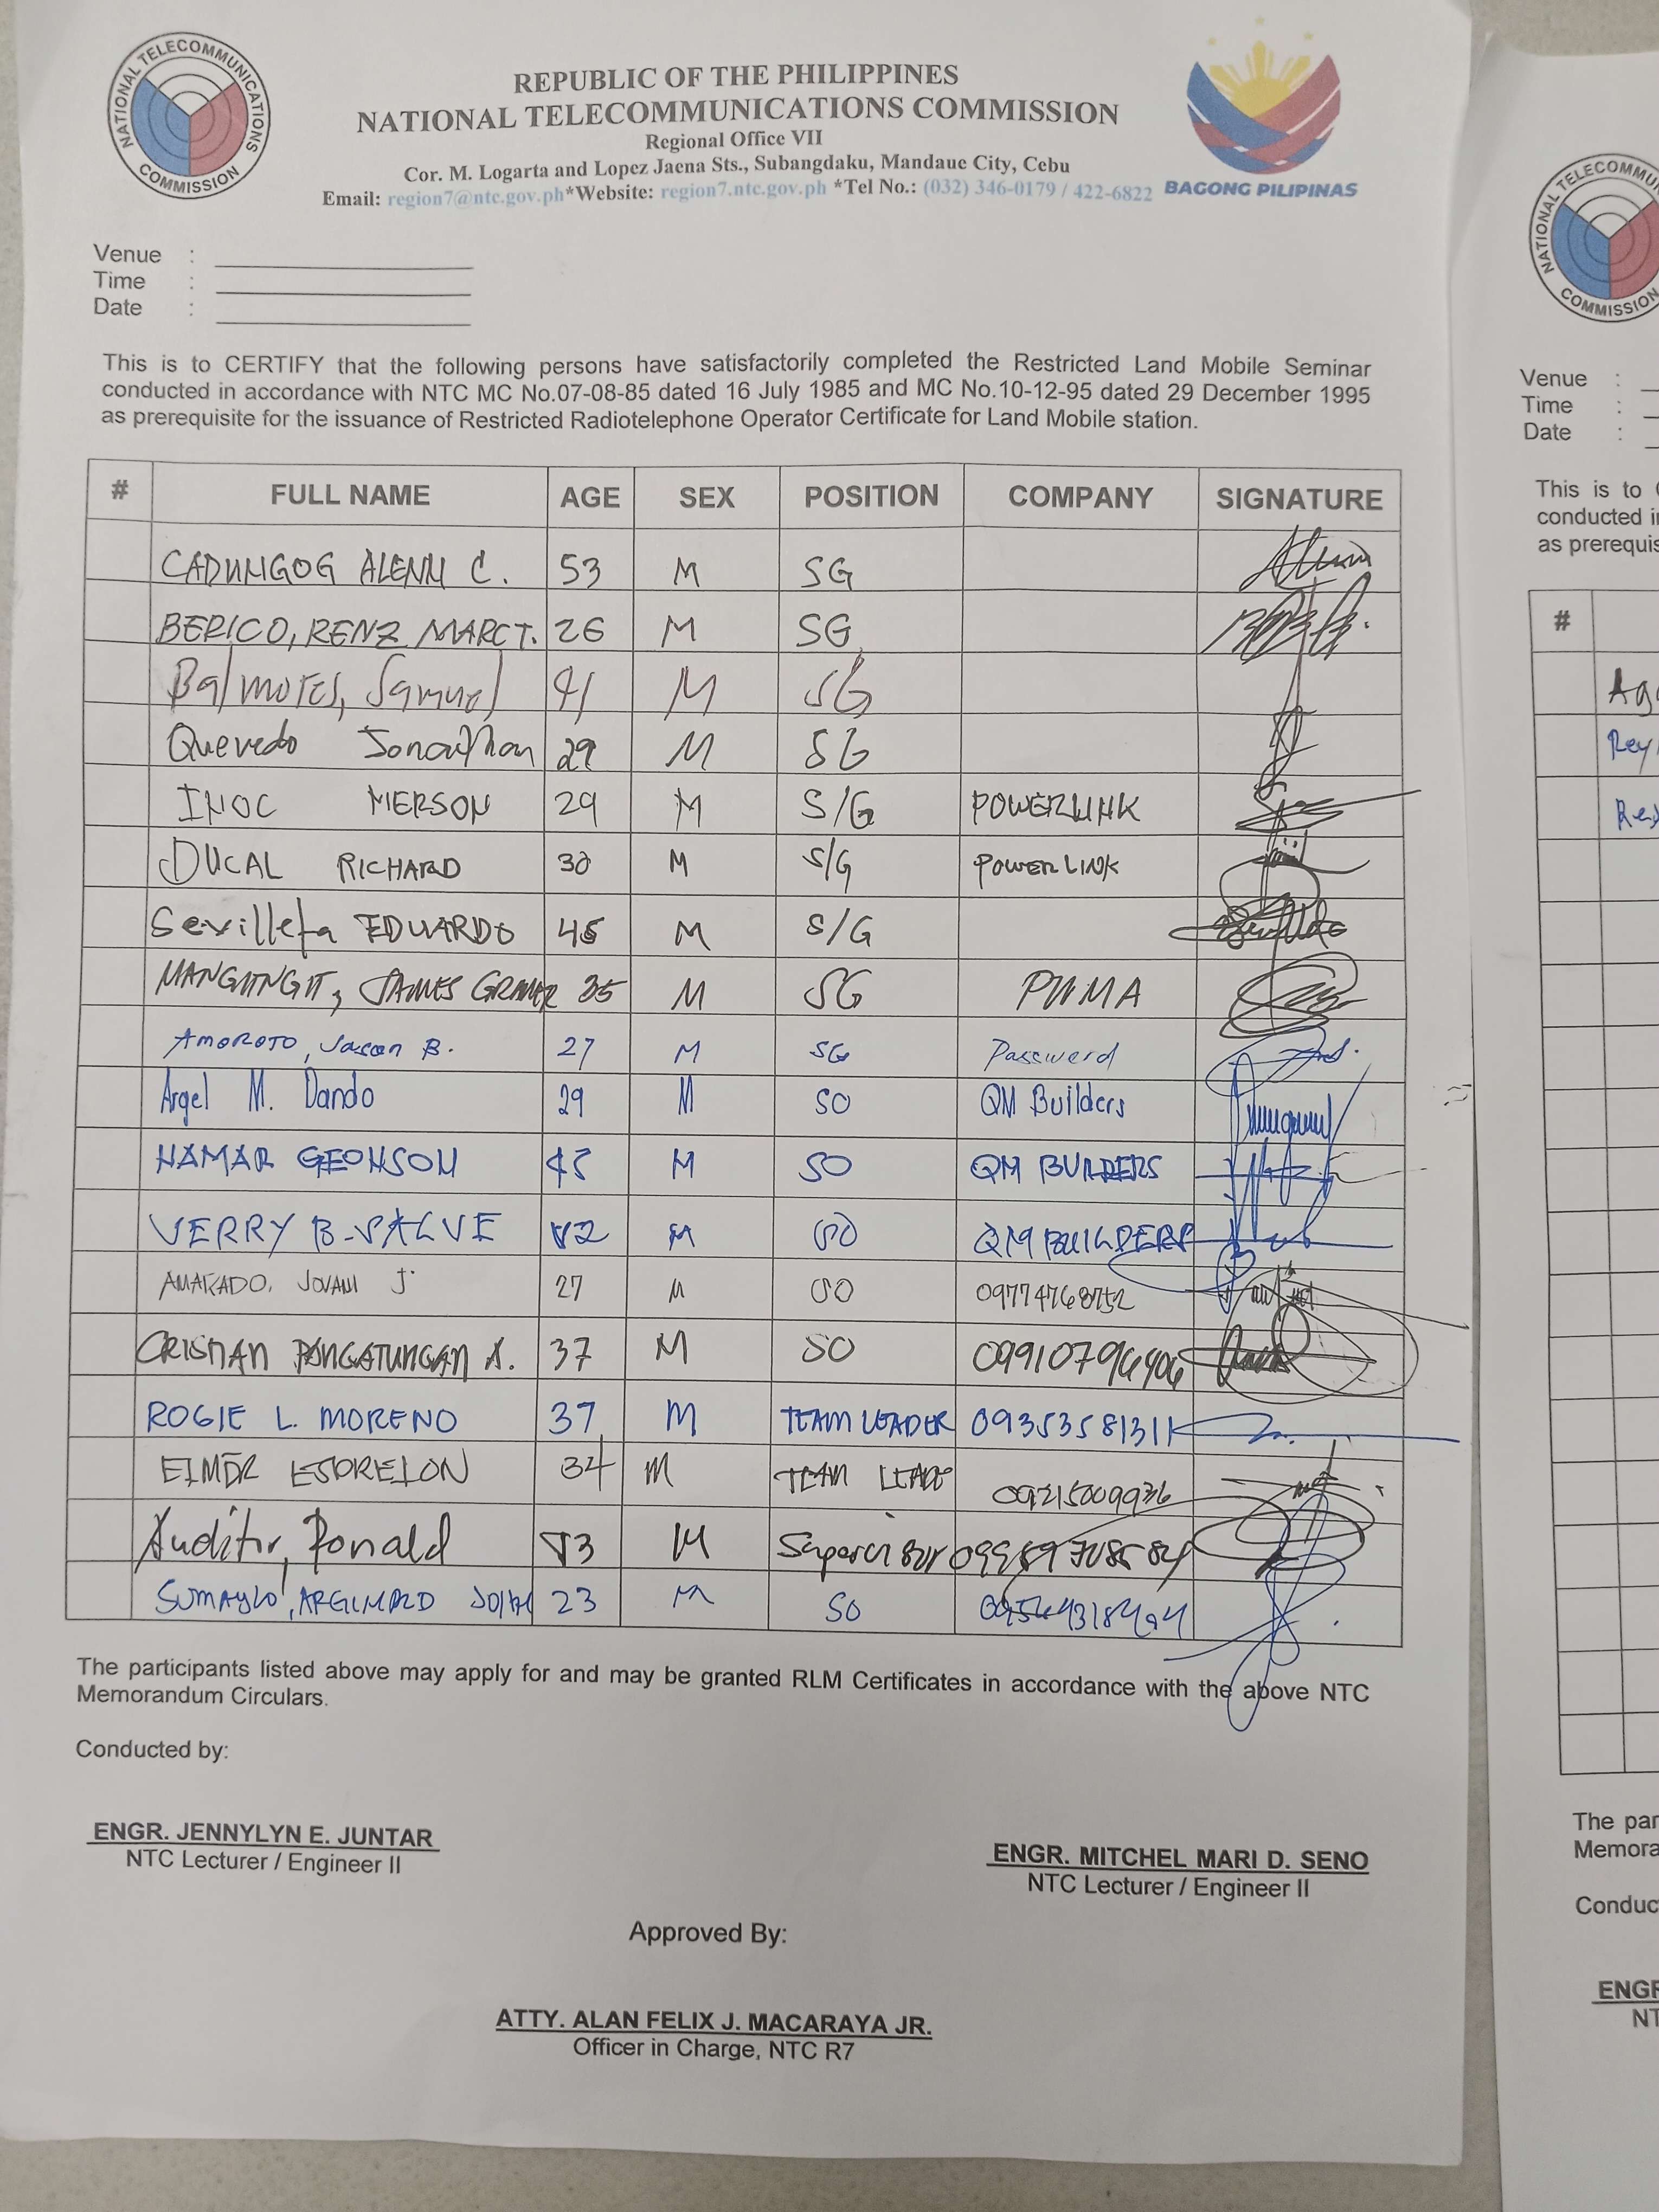 NATIONAL TELECOMMUNICATIONS COMMISSION
REPUBLIC OF THE PHILIPPINES
NATIONAL TELECOMMUNICATIONS COMMISSION
Regional Office VII
Cor. M. Logarta and Lopez Jaena Sts., Subangdaku, Mandaue City, Cebu
Email: region7@ntc.gov.ph*Website: region7.ntc.gov.ph *Tel No.: (032) 346-0179 / 422-6822
BAGONG PILIPINAS
Venue :
Time :
Date :
This is to CERTIFY that the following persons have satisfactorily completed the Restricted Land Mobile Seminar
conducted in accordance with NTC MC No.07-08-85 dated 16 July 1985 and MC No.10-12-95 dated 29 December 1995
as prerequisite for the issuance of Restricted Radiotelephone Operator Certificate for Land Mobile station.
# FULL NAME AGE SEX POSITION COMPANY SIGNATURE
CADUNGOG ALENN C. 53 M SG
BERICO, RENZ MARC T. 26 M SG
Balmores, Samuel 41 M SG
Quevedo Jonathan 29 M SG
INOC MERSON 29 M S/G POWERLINK
DUCAL RICHARD 30 M S/G POWERLINK
Sevilleta EDUARDO 45 M S/G
MANGUNGIT, JAMES 35 M SG PNMA
AMOROTO, Jason B. 27 M SG Password
Argel M. Dando 29 M SO QM Builders
HAMAR GEOHSON 45 M SO QM BUILDERS
VERRY B. SALVE M SO QM BUILDERS
JOVANI J. 27 M SO 09774768752
CRISTIAN PANGATUNGAN A. 37 M SO 09910796906
ROGIE L. MORENO 37 M TEAM LEADER 09353581311
34 M TEAM 09215009936
Ronald M Supervisor
SUMAYLO, 23 M SO
The participants listed above may apply for and may be granted RLM Certificates in accordance with the above NTC
Memorandum Circulars.
Conducted by:
ENGR. JENNYLYN E. JUNTAR
NTC Lecturer / Engineer II
ENGR. MITCHEL MARI D. SENO
NTC Lecturer / Engineer II
Approved By:
ATTY. ALAN FELIX J. MACARAYA JR.
Officer in Charge, NTC R7
NATIONAL TELECOMMU
COMMISSION
Venue :
Time :
Date :
This is to
conducted
as
#
Ag
Rey
The
Conduc
ENGR
NT